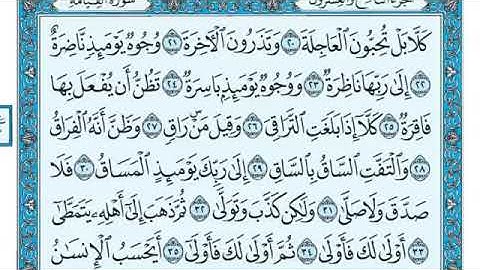 سورة القيامة الجزء التاسع والعشرون
كَلَّا بَلْ تُحِبُّونَ ٱلْعَاجِلَةَ ٢٠ وَتَذَرُونَ ٱلْآخِرَةَ ٢١ وُجُوهٌ يَوْمَئِذٍ نَّاضِرَةٌ
٢٢ إِلَىٰ رَبِّهَا نَاظِرَةٌ ٢٣ وَوُجُوهٌ يَوْمَئِذٍۭ بَاسِرَةٌ ٢٤ تَظُنُّ أَن يُفْعَلَ بِهَا
فَاقِرَةٌ ٢٥ كَلَّآ إِذَا بَلَغَتِ ٱلتَّرَاقِىَ ٢٦ وَقِيلَ مَنْ رَاقٍ ٢٧ وَظَنَّ أَنَّهُ ٱلْفِرَاقُ
٢٨ وَٱلْتَفَّتِ ٱلسَّاقُ بِٱلسَّاقِ ٢٩ إِلَىٰ رَبِّكَ يَوْمَئِذٍ ٱلْمَسَاقُ ٣٠ فَلَا
صَدَّقَ وَلَا صَلَّىٰ ٣١ وَلَٰكِن كَذَّبَ وَتَوَلَّىٰ ٣٢ ثُمَّ ذَهَبَ إِلَىٰٓ أَهْلِهِۦ يَتَمَطَّىٰٓ
٣٣ أَوْلَىٰ لَكَ فَأَوْلَىٰ ٣٤ ثُمَّ أَوْلَىٰ لَكَ فَأَوْلَىٰٓ ٣٥ أَيَحْسَبُ ٱلْإِنسَٰنُ